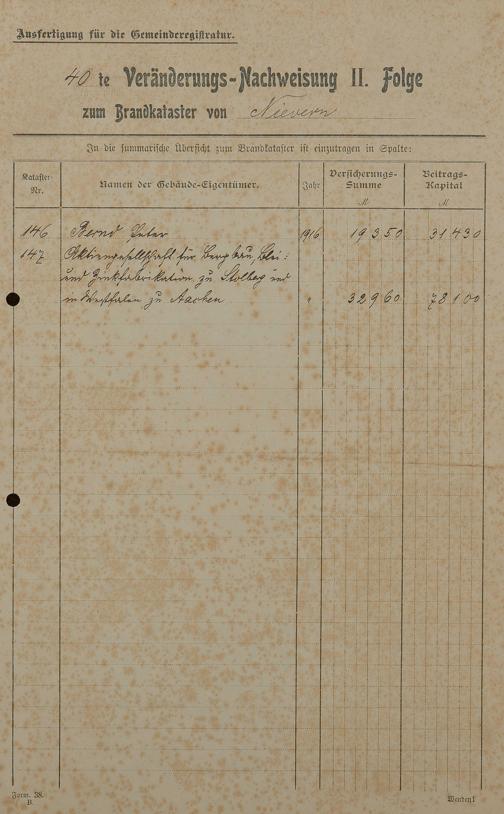 Ausfertigung für die Gemeinderegistratur.
40 te Veränderungs-Nachweisung II. Folge
zum Brandkataster von Nievern
In die summarische Übersicht zum Brandkataster ist einzutragen in Spalte:
Kataster-Nr. Namen der Gebäude-Eigentümer. Jahr Versicherungs-Summe Beitrags-Kapital
M M
146 Bernd, Peter 1916 19350 31430
147 Aktiengesellschaft für Bergbau, Blei-
und Zinkfabrikation zu Stolberg und
in Westfalen zu Aachen " 32960 78100
Form. 38.
B.
Wenden!